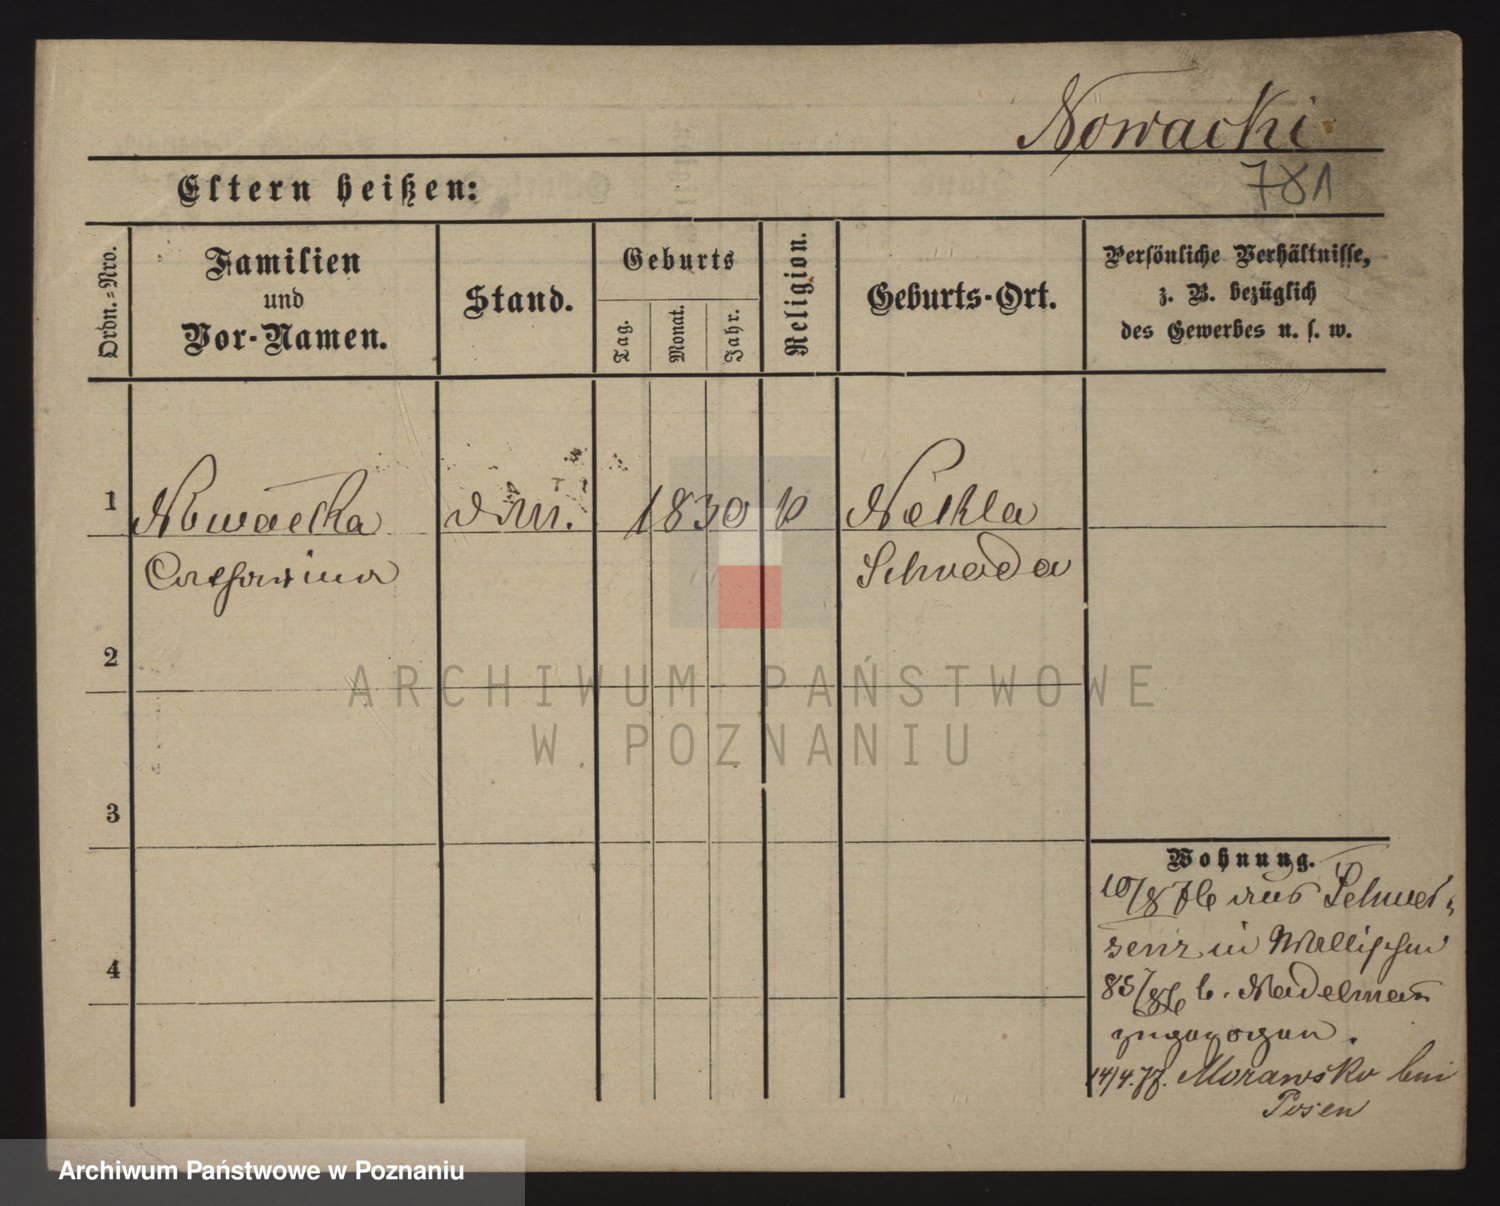 Nowacki
781
Eltern heißen:
Ordn.=Nro.
Familien
und
Vor-Namen.
Stand.
Geburts
Tag.
Monat.
Jahr.
Religion.
Geburts-Ort.
Persönliche Verhältnisse,
z. B. bezüglich
des Gewerbes u. s. w.
1 Nowacka 1830 Nekla
Catharina
2
3
4
Wohnung.
10/8 76 aus Schwer-
senz in Wallischei
85/86 b. Nadelman
zugezogen.
14/4.77. Morawsko bei
Posen
ARCHIWUM PAŃSTWOWE
W POZNANIU
Archiwum Państwowe w Poznaniu